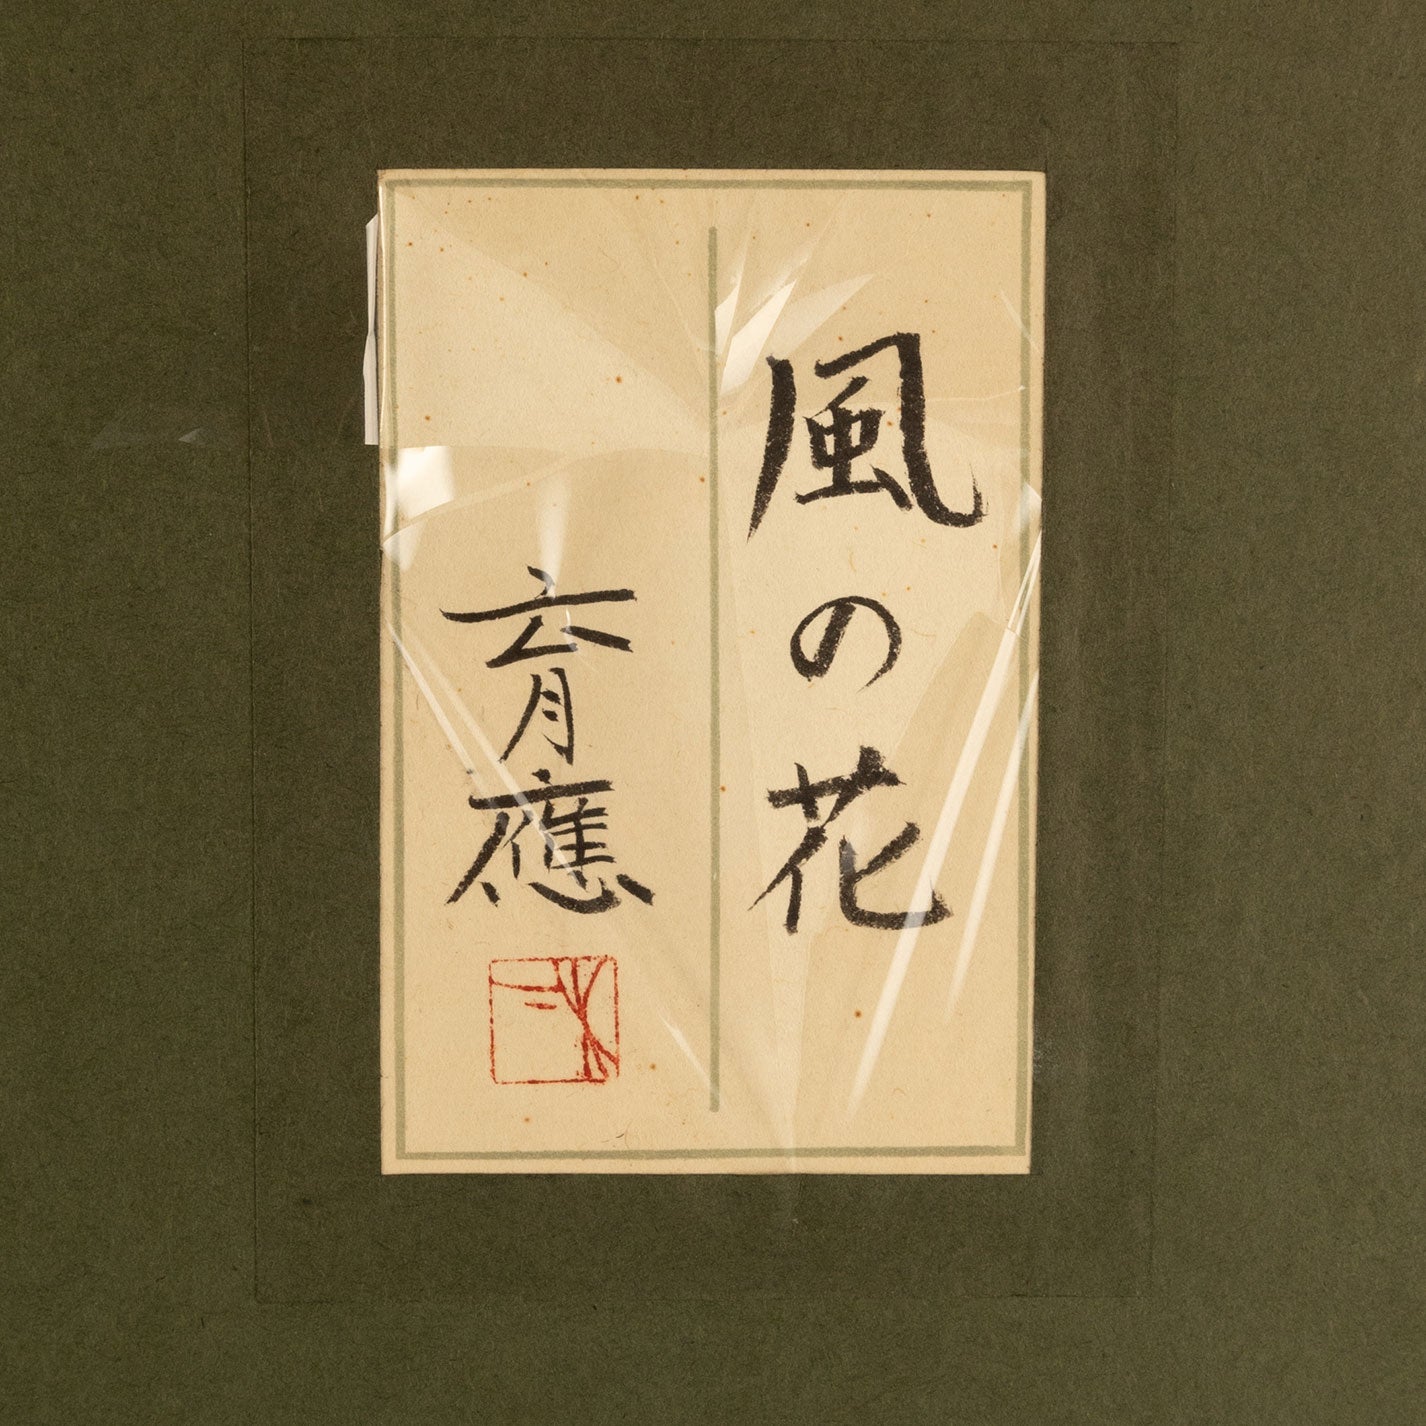 風の花
育應